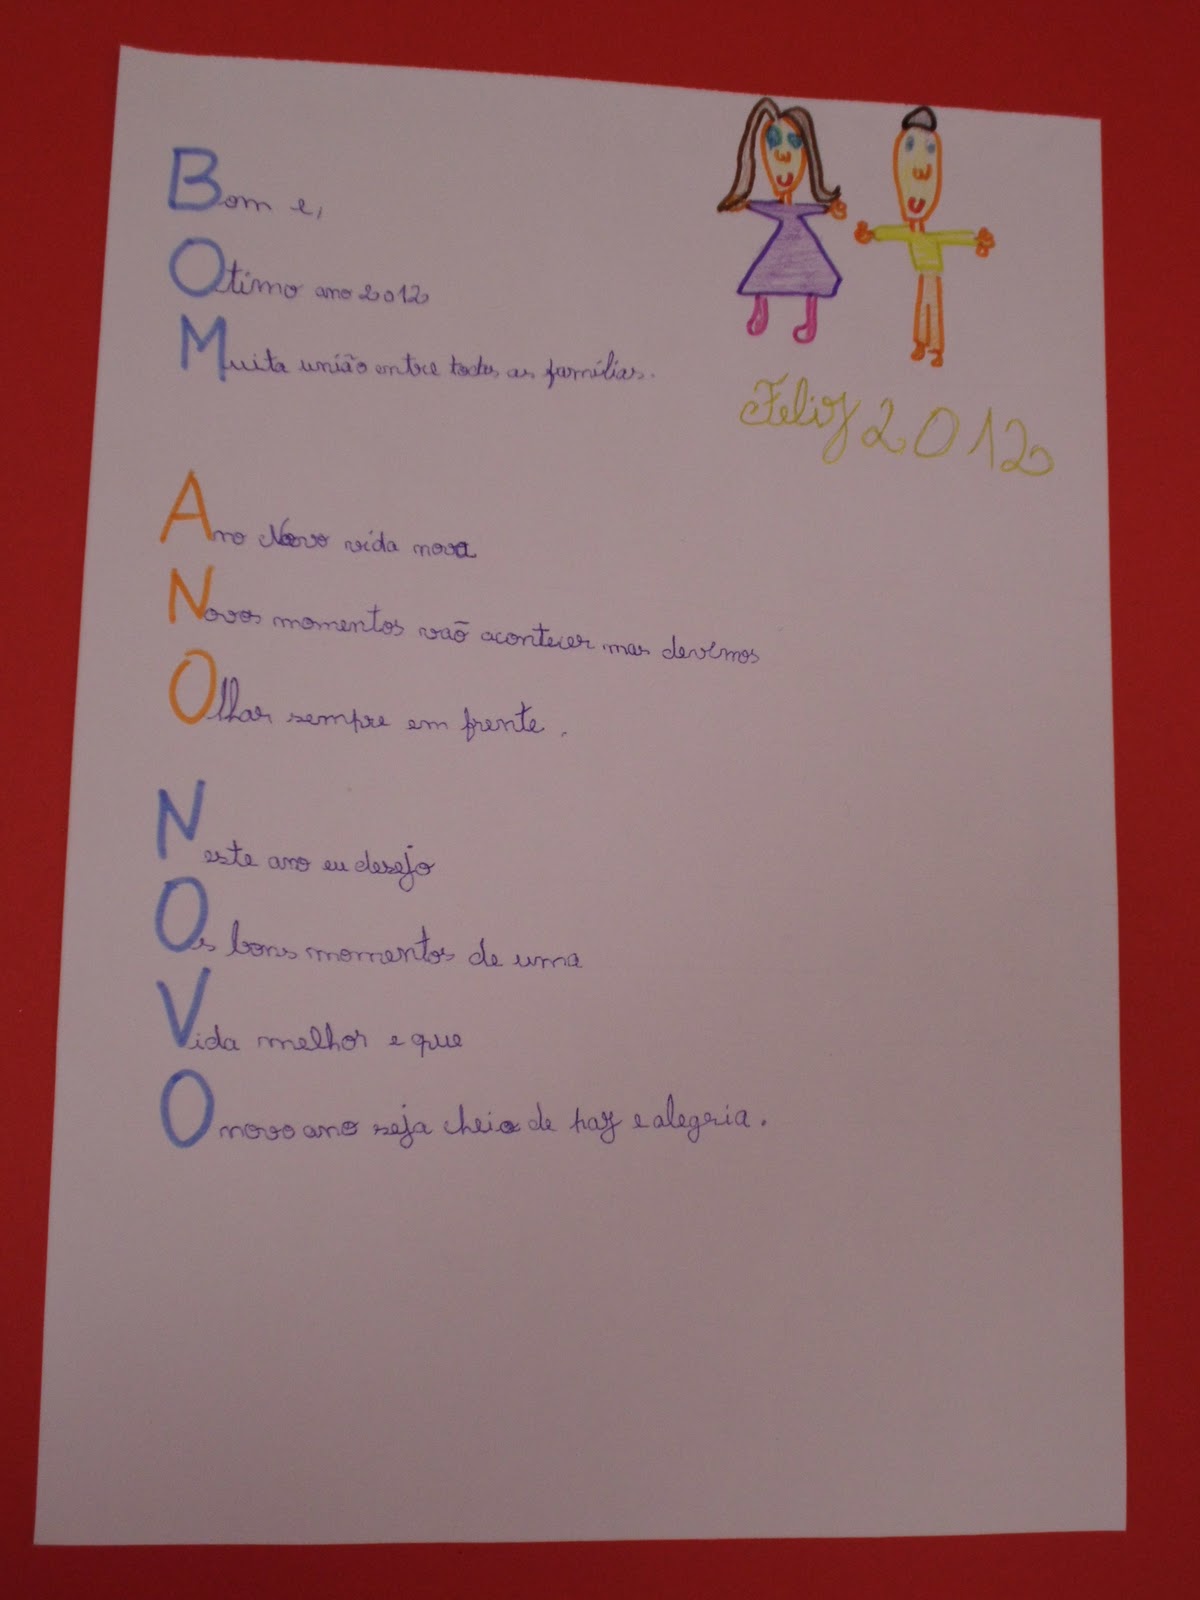 Bom e,
Otimo ano 2012
Muita união entre todas as famílias.
Feliz 2012
Ano Novo vida nova
Novos momentos vaõ acontecer, mas devemos
Olhar sempre em frente.
Neste ano eu desejo
Os bons momentos de uma
Vida melhor e que
O novo ano seja cheio de paz e alegria.